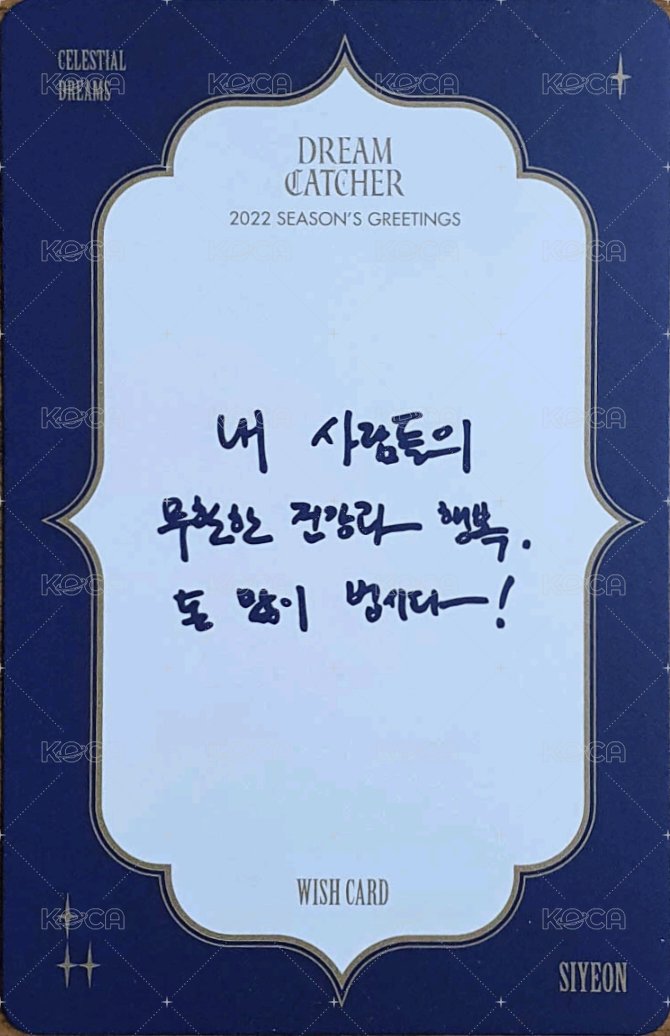 CELESTIAL
DREAMS
DREAM
CATCHER
2022 SEASON'S GREETINGS
내 사람들의
무한한 건강과 행복.
돈 많이 법시다!
WISH CARD
SIYEON
KOCA